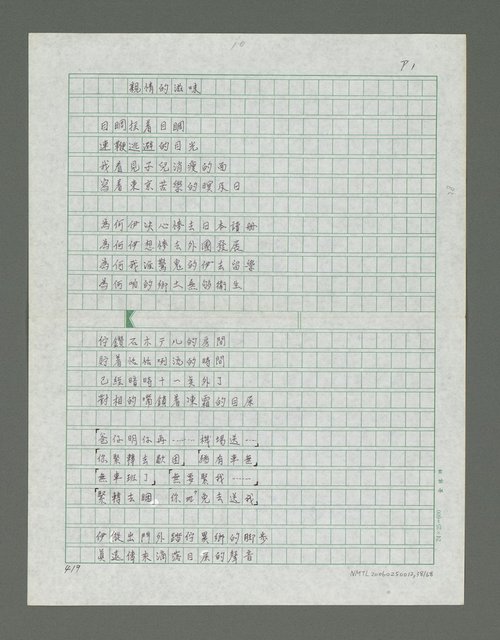 10
P1
親情的滋味
目睭扙着目睭
連鞭逃避的目光
我看見子兒消瘦的面
寫着東京苦樂的暝及日
為何伊決心慘去日本讀冊
為何伊想慘去外國發展
為何我 驚鬼的伊去留學
為何咱的鄉土無夠衛生
佇鑽石ホテル的房間
貯着 流的時間
已經暗時十一點外了
對相的嘴鎖着凍霜的目屎
「爸你明你再……機場送…」
「你緊轉去歇困」「猶有車無」
「無車班了」「無要緊我……」
「緊轉去睏 你 免去送我」
伊做出門外踏你異鄉的脚步
真遠傳來滴落目屎的聲音
419
NMTL20060250012,38/68
24×25=600